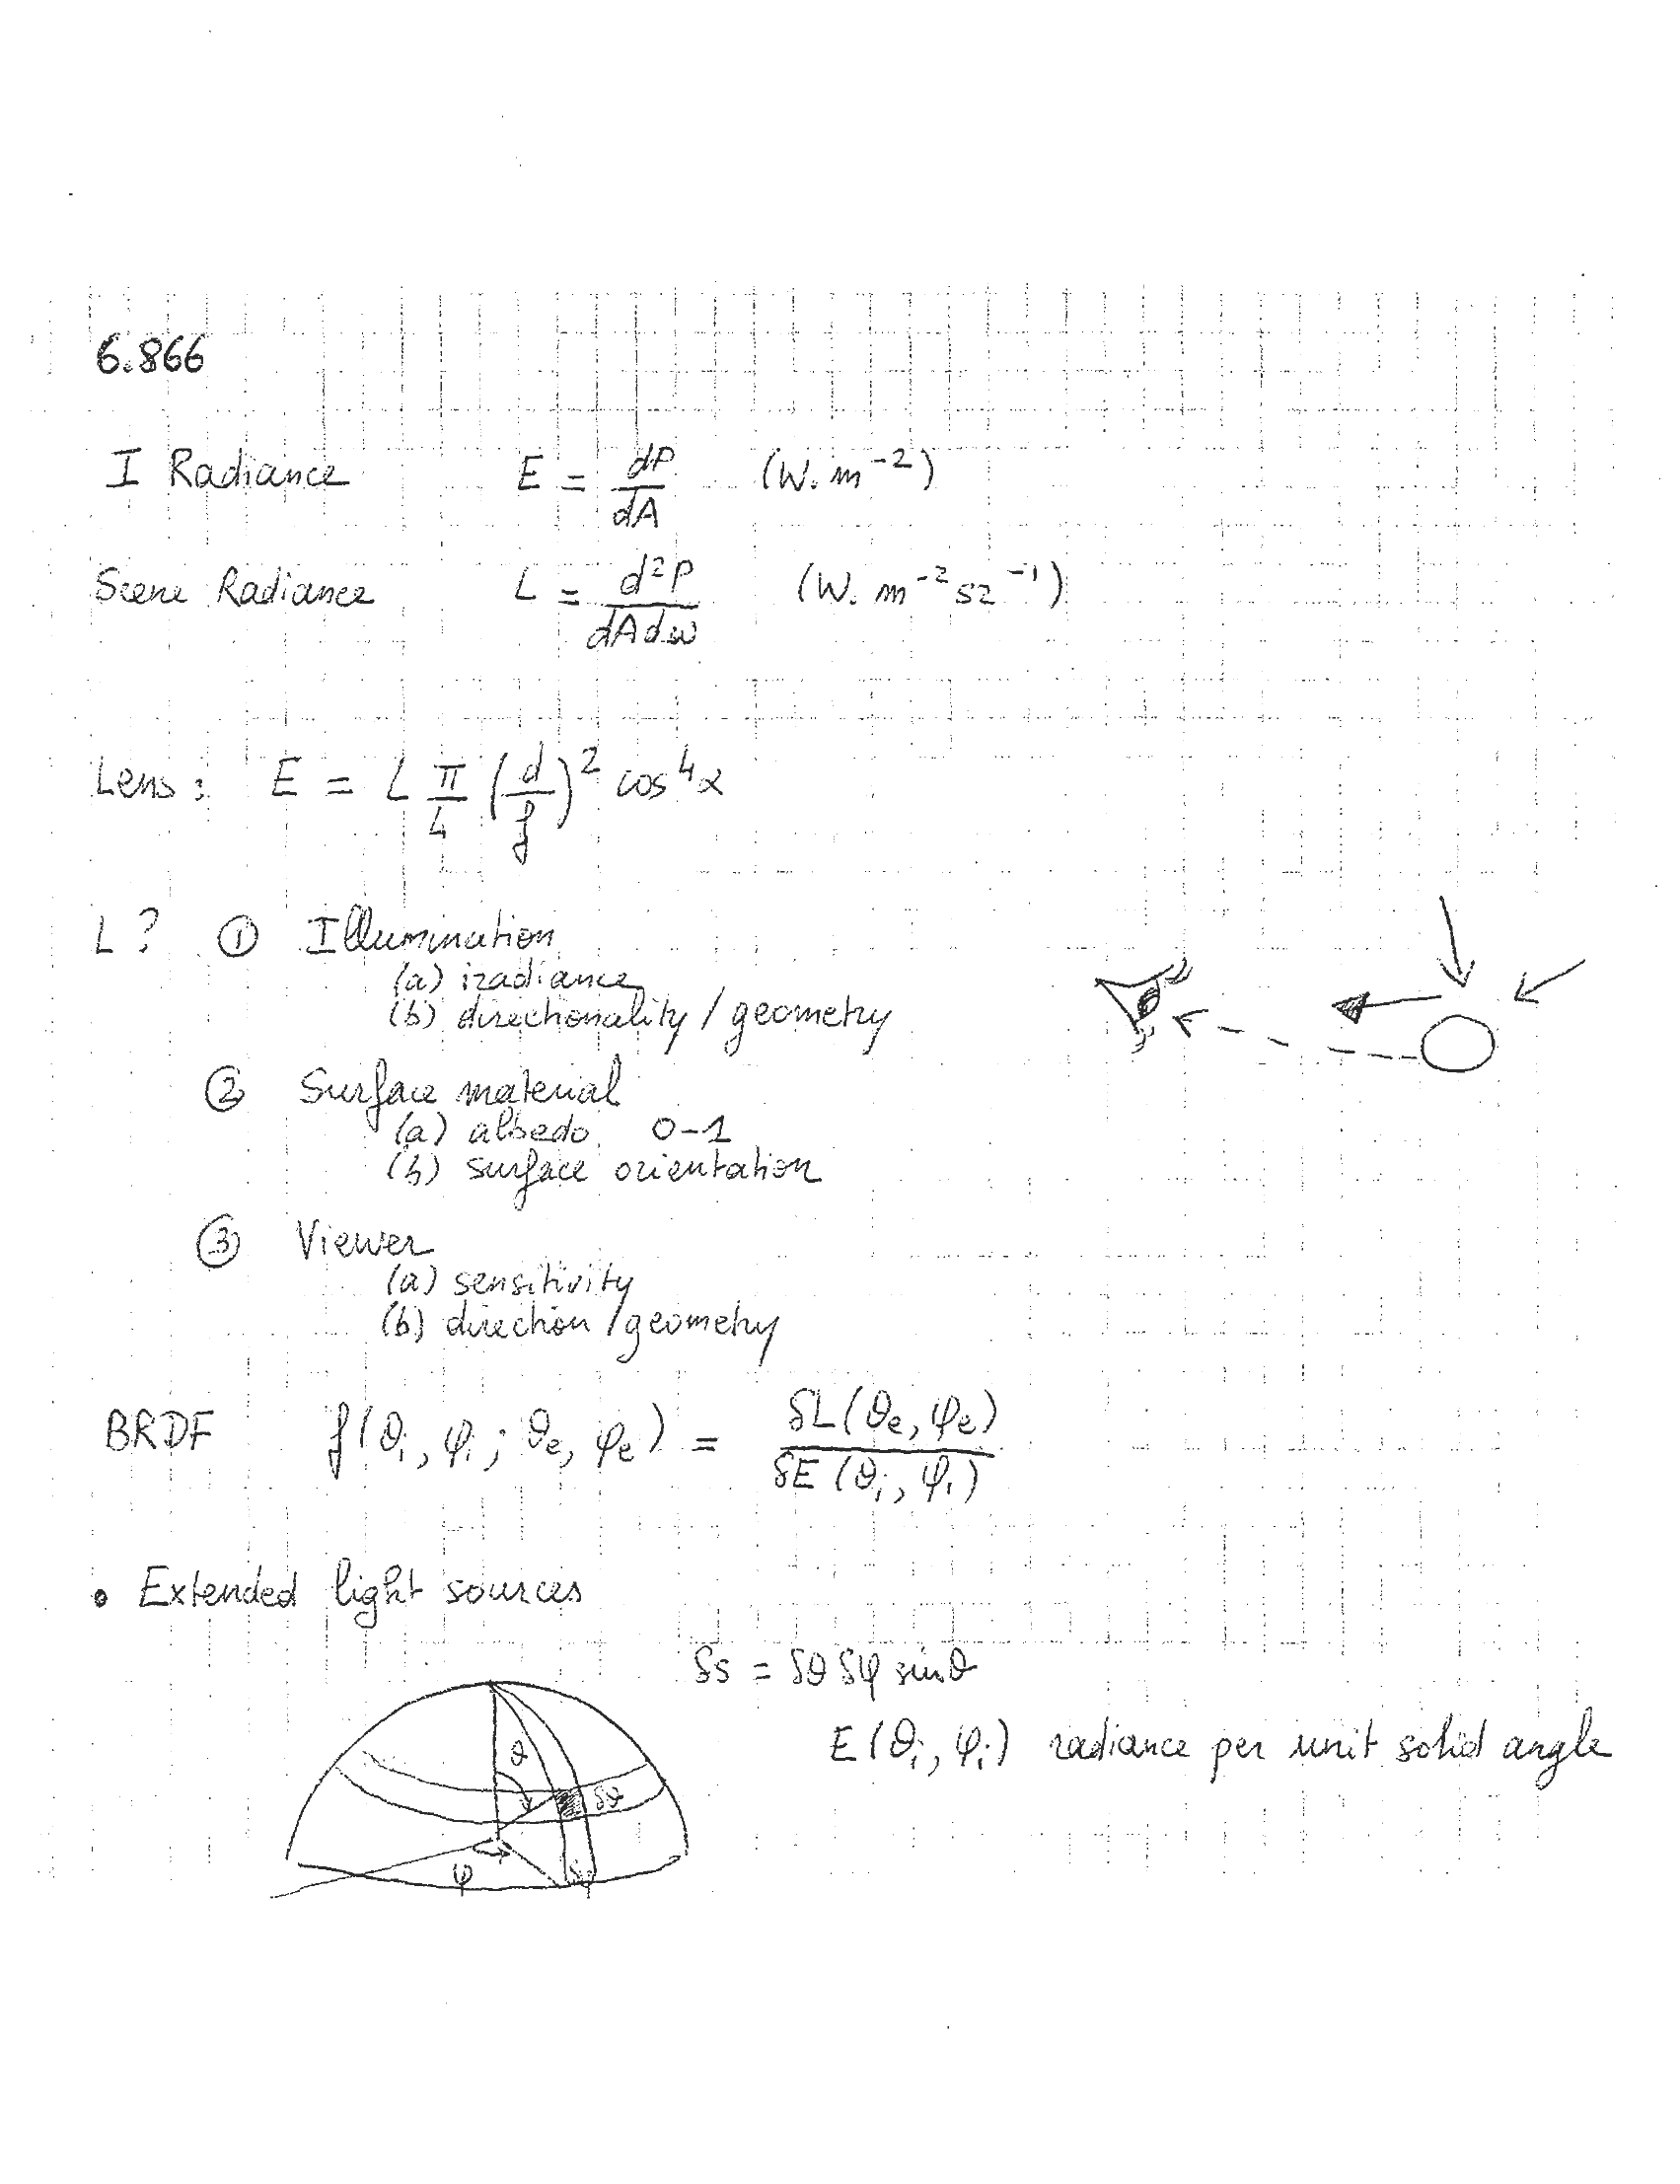 6.866
I Radiance E = dP/dA (W. m⁻²)
Scene Radiance L = d²P/dAdω (W. m⁻² sr⁻¹)
Lens: E = L π/4 (d/f)² cos⁴α
L? ① Illumination
(a) iradiance
(b) directionality / geometry
② Surface material
(a) albedo 0-1
(b) surface orientation
③ Viewer
(a) sensitivity
(b) direction / geometry
BRDF f(θi, φi; θe, φe) = δL(θe, φe)/δE(θi, φi)
• Extended light sources
δs = δθ δφ sinθ
E(θi, φi) radiance per unit solid angle
θ
δθ
φ
δφ